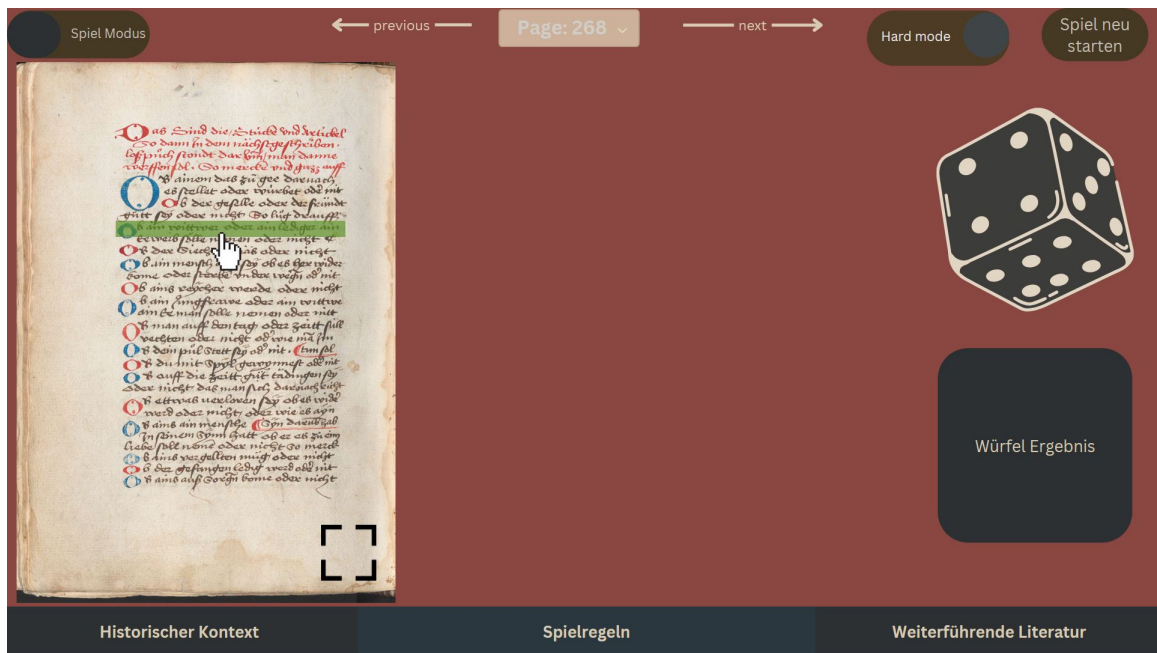 Spiel Modus
previous
Page: 268
next
Hard mode
Spiel neu
starten
Das Sind die Stucke vnd Artickel
So dann In dem nächstgeschriben
man danne
So mercke vnd
OB ainem das zü gee darnach
es stellet oder würbet oder nit
Ob der geselle oder der fraindt
gütt sey oder nicht So lüg drauff
Ob ain wittwer oder ain lediger ain
nemen oder nicht
OB der Siech oder nicht
OB ain mensch sey ob es her wider
kome oder sterbe vnder wegn od nit
OB ains reycher werde oder nicht
OB ain Jungfrawe oder ain wittwe
ain Eeman sölle nemen oder nitt
OB man auff den tag oder zeitt süll
vechten oder nicht od wie ma Im
OB dein pül Stett sey od nit
OB du mit Spyl gewynnest od nit
OB auff die zeitt güt tädingen sey
oder nicht das man sich darnach richt
OB ettwas verloren sey ob es wider
werd oder nicht oder wie es ayn
OB ains ain mensche
In seinem Synn hatt ob er es zü em
liebe soll neme oder nicht So merck
OB ains vergellten müg oder nicht
Ob der gefangen ledig werd oder nit
OB ains auß Sorgn kome oder nicht
Würfel Ergebnis
Historischer Kontext
Spielregeln
Weiterführende Literatur